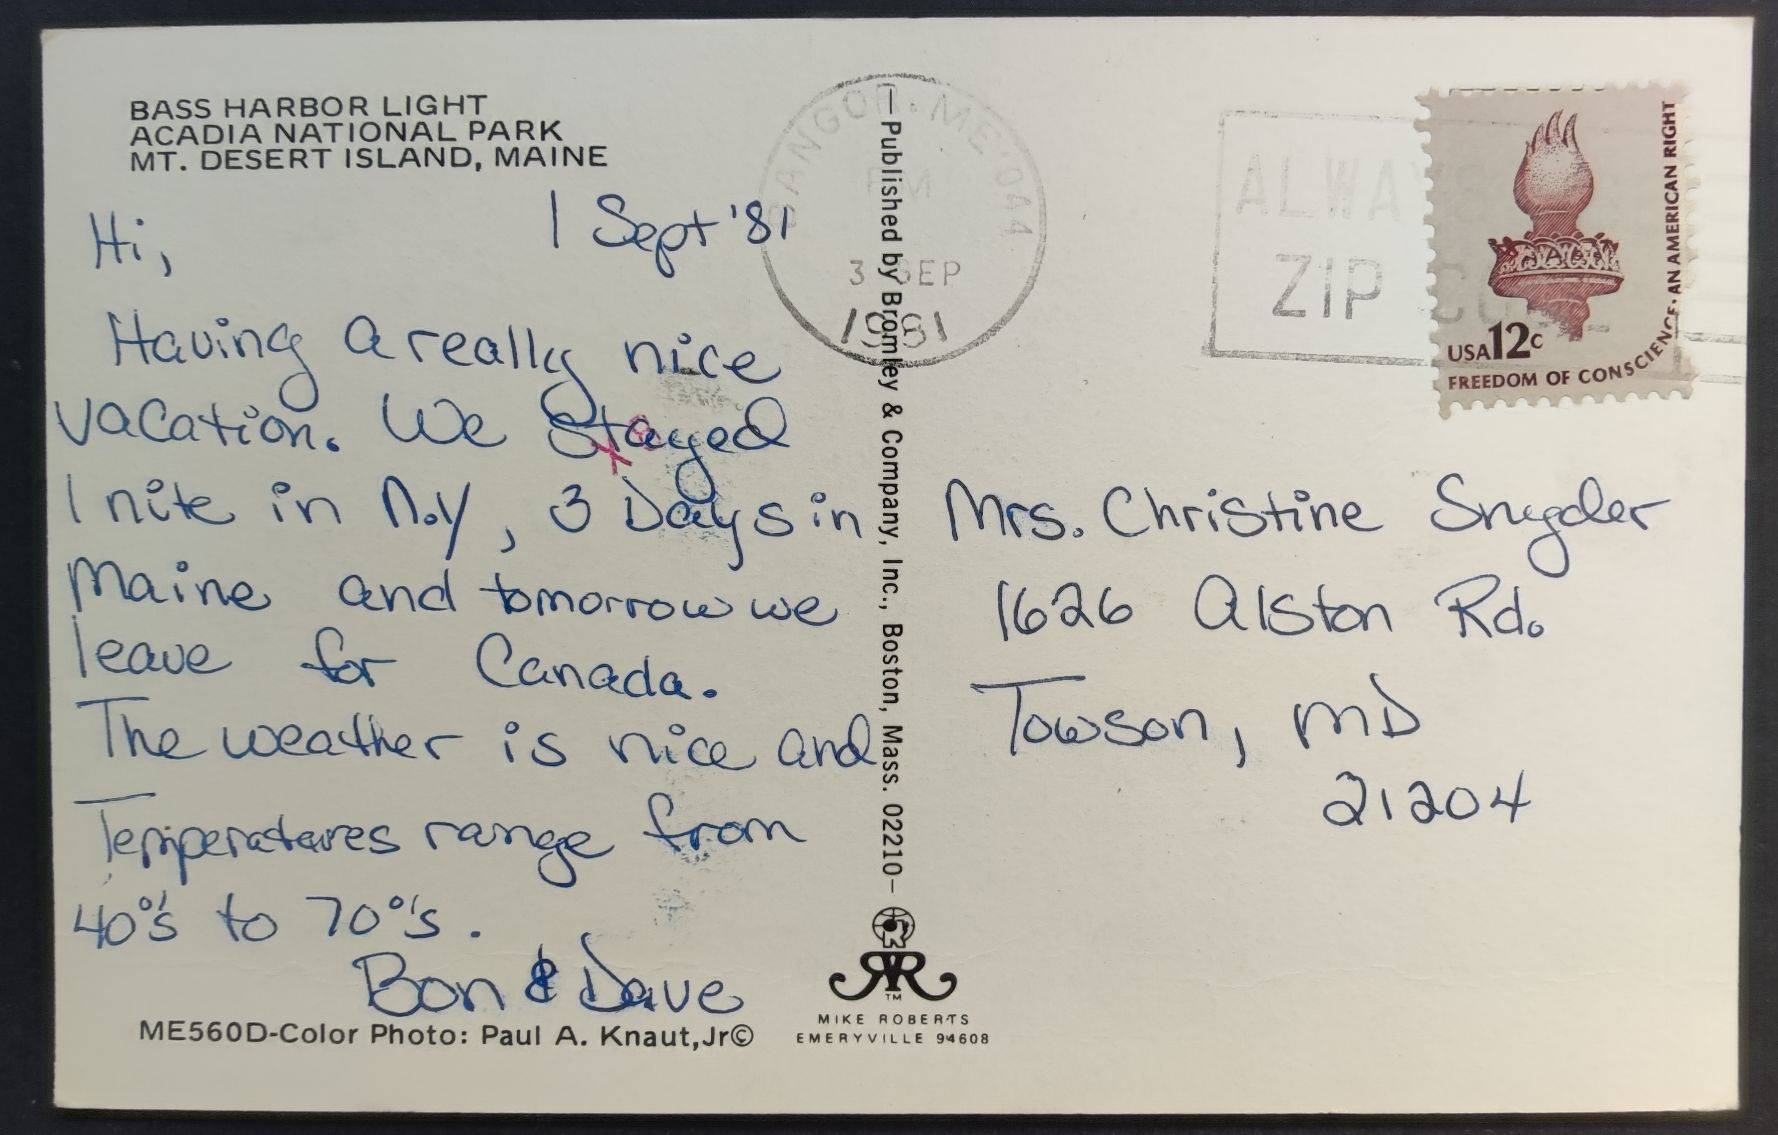 BASS HARBOR LIGHT
ACADIA NATIONAL PARK
MT. DESERT ISLAND, MAINE
1 Sept '81
Hi,
Having a really nice
vacation. We stayed
1 nite in N.Y, 3 Days in
Maine and tomorrow we
leave for Canada.
The weather is nice and
Temperatures range from
40°'s to 70°'s.
Bon & Dave
ME560D-Color Photo: Paul A. Knaut,Jr©
—Published by Bromley & Company, Inc., Boston, Mass. 02210—
TM
MIKE ROBERTS
EMERYVILLE 94608
BANGOR, ME 044
PM
3 SEP
1981
ALWAYS
ZIP CODE
USA 12c
FREEDOM OF CONSCIENCE · AN AMERICAN RIGHT
Mrs. Christine Snyder
1626 Alston Rd.
Towson, MD
21204